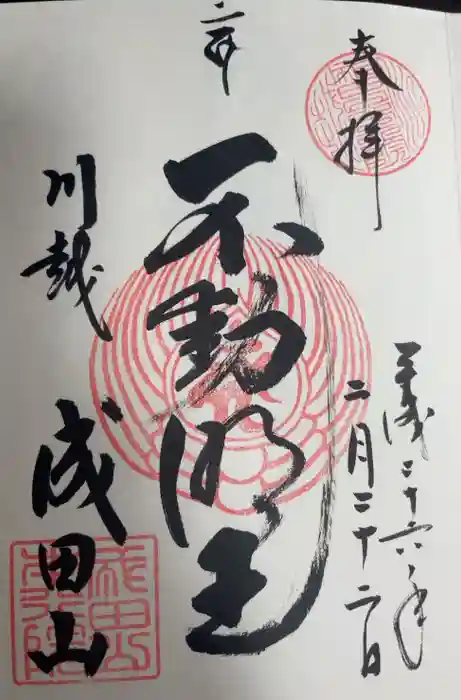 奉拝
平成二十六年
二月二十二日
不動明王
川越
成田山